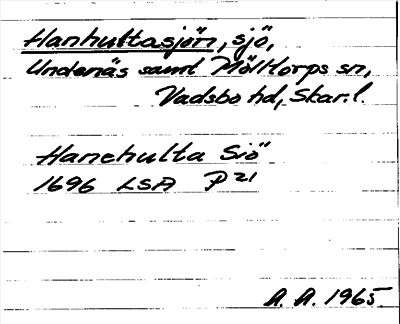 Hanhultasjön, sjö,
Undenäs samt Mölltorps sn,
Vadsbo hd, Skar.l.
Hanehulta Siö
1696 LSA P21
A. A. 1965